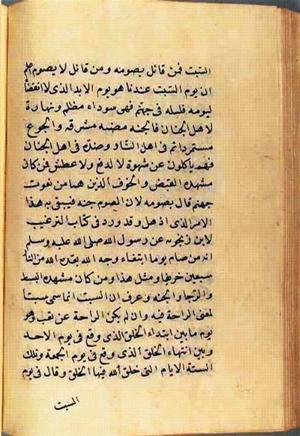 السبت فمن قائل بصومه ومن قائل لا يصوم اعلم
ان يوم السبت عندنا هو يوم الابد الذى لا انقضآ
ليومه فليله فى جهنم فهى سوداء مظلمة ونهاره
لاهل الجنان فالجنة مضيئة مشرقة والجوع
مستمر دائم فى اهل النار وضده فى اهل الجنان
فهم ياكلون عن شهوة لا لدفع ولا عطش فمن كان
مشهده القبض والخوف الذين هما من نعوت
جهنم قال بصومه لان الصوم جنة فيتقى به هذا
الامر الذى اذهله وقد ورد فى كتاب الترغيب
لابن زنجويه عن رسول الله صلى الله عليه وسلم
انه من صام يوما ابتغاء وجه الله بعده الله من النار
سبعين خريفا ومثل هذا ومن كان مشهده البسط
والرجا والجنة وعرف ان السبت انما سمى سبتا
لمعنى الراحة فيه وان لم يكن الراحة عن تعب وهو
يوم ما بين ابتداء الخلق الذى وقع فى يوم الاحد
وبين انتهاء الخلق الذى وقع فى يوم الجمعة وتلك
الستة الايام التى خلق الله فيها الخلق وقال فى يوم
السبت